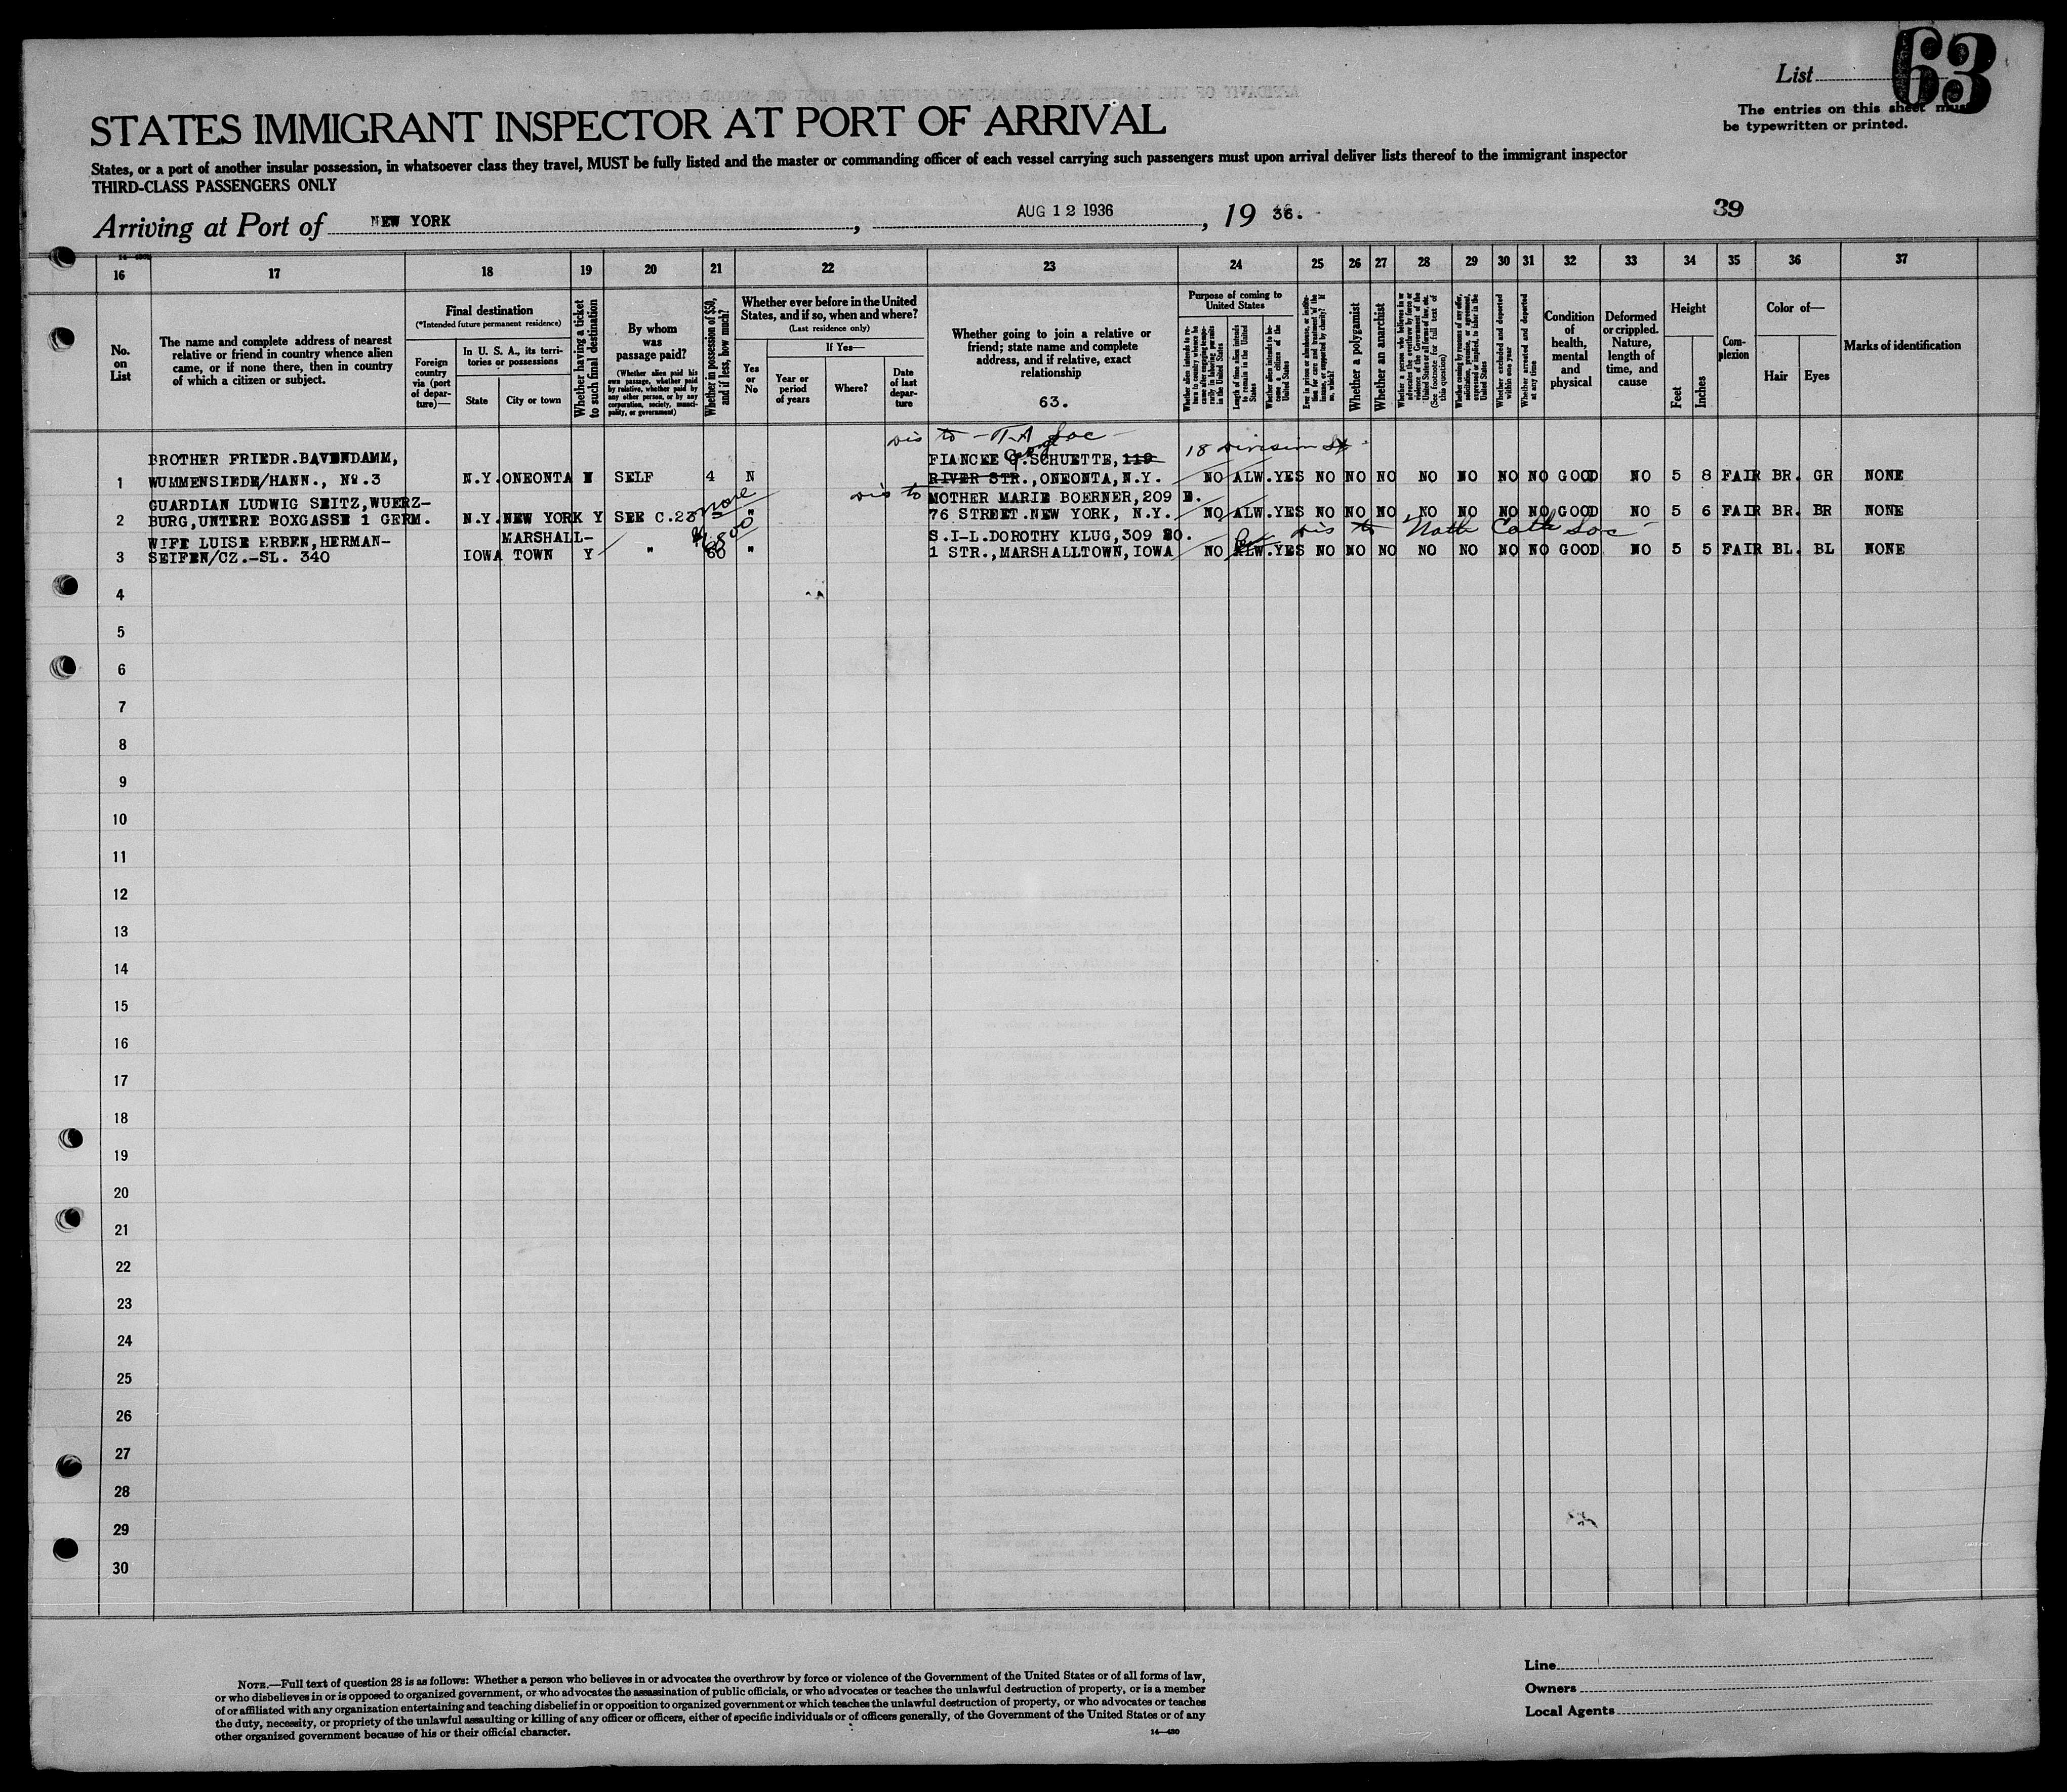 List
63
The entries on this sheet must
be typewritten or printed.
STATES IMMIGRANT INSPECTOR AT PORT OF ARRIVAL
States, or a port of another insular possession, in whatsoever class they travel, MUST be fully listed and the master or commanding officer of each vessel carrying such passengers must upon arrival deliver lists thereof to the immigrant inspector
THIRD-CLASS PASSENGERS ONLY
Arriving at Port of NEW YORK, AUG 12 1936, 19 36.
39
16 17 18 19 20 21 22 23 24 25 26 27 28 29 30 31 32 33 34 35 36 37
No.
on
List
The name and complete address of nearest
relative or friend in country whence alien
came, or if none there, then in country
of which a citizen or subject.
Final destination
(*Intended future permanent residence)
Foreign
country
via (port
of depar-
ture)—
In U. S. A., its terri-
tories or possessions
State
City or town
Whether having a ticket
to such final destination
By whom
was
passage paid?
(Whether alien paid his
own passage, whether paid
by relative, whether paid by
any other person, or by any
corporation, society, munici-
pality, or government)
Whether in possession of $50,
and if less, how much?
Whether ever before in the United
States, and if so, when and where?
(Last residence only)
Yes
or
No
If Yes—
Year or
period
of years
Where?
Date
of last
depar-
ture
Whether going to join a relative or
friend; state name and complete
address, and if relative, exact
relationship
63.
Purpose of coming to
United States
Whether alien intends to re-
turn to country whence he
came after engaging tempo-
rarily in laboring pursuits
in the United States
Length of time alien intends
to remain in the United
States
Whether alien intends to be-
come a citizen of the
United States
Ever in prison or almshouse, or institu-
tion for care and treatment of the
insane, or supported by charity? If
so, which?
Whether a polygamist
Whether an anarchist
Whether a person who believes in or
advocates the overthrow by force or
violence of the Government of the
United States or all forms of law, etc.
(See footnote for full text of
this question)
Whether coming by reason of any offer,
solicitation, promise, or agreement,
expressed or implied, to labor in the
United States
Whether excluded and deported
within one year
Whether arrested and deported
at any time
Condition
of
health,
mental
and
physical
Deformed
or crippled.
Nature,
length of
time, and
cause
Height
Feet
Inches
Com-
plexion
Color of—
Hair
Eyes
Marks of identification
dis to - T.A Soc - 18 Division St.
BROTHER FRIEDR.BAVENDAMM, FIANCEE G.SCHUETTE, 119
1 WUMMENSIEDE/HANN., No.3 N.Y. ONEONTA N SELF 4 N RIVER STR.,ONEONTA,N.Y. NO ALW. YES NO NO NO NO NO NO NO GOOD NO 5 8 FAIR BR. GR NONE
GUARDIAN LUDWIG SEITZ,WUERZ- more dis to MOTHER MARIE BOERNER,209 E.
2 BURG,UNTERE BOXGASSE 1 GERM. N.Y. NEW YORK Y SEE C.23 " 76 STREET.NEW YORK, N.Y. NO ALW. YES NO NO NO NO NO NO NO GOOD NO 5 6 FAIR BR. BR NONE
WIFE LUISE ERBEN,HERMAN- MARSHALL- S.I-L.DOROTHY KLUG,309 SO. dis to Natl Cath Soc -
3 SEIFEN/CZ.-SL. 340 IOWA TOWN Y " 60 " 1 STR.,MARSHALLTOWN,IOWA NO ALW. YES NO NO NO NO NO NO NO GOOD NO 5 5 FAIR BL. BL NONE
4
5
6
7
8
9
10
11
12
13
14
15
16
17
18
19
20
21
22
23
24
25
26
27
28
29
30
NOTE.—Full text of question 28 is as follows: Whether a person who believes in or advocates the overthrow by force or violence of the Government of the United States or of all forms of law,
or who disbelieves in or is opposed to organized government, or who advocates the assassination of public officials, or who advocates or teaches the unlawful destruction of property, or is a member
of or affiliated with any organization entertaining and teaching disbelief in or opposition to organized government or which teaches the unlawful destruction of property, or who advocates or teaches
the duty, necessity, or propriety of the unlawful assaulting or killing of any officer or officers, either of specific individuals or of officers generally, of the Government of the United States or of any
other organized government because of his or their official character.
14—430
Line
Owners
Local Agents